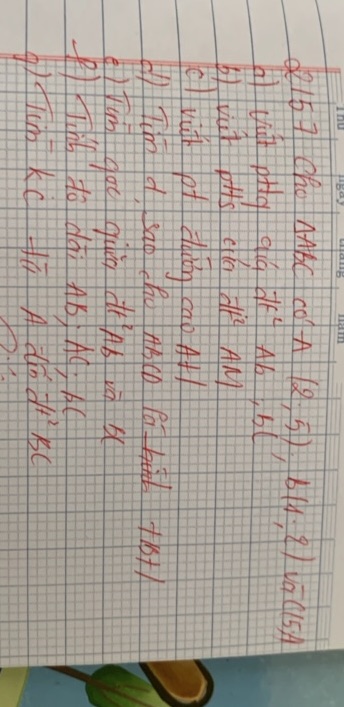 Thứ ngày tháng năm
Cho ΔABC có A (2;5), B(1;2) và C(5;1
a) Viết pttq của đt² AB, BC,
b) viết ptts của đt² AM
c) viết pt đường cao AH
d) Tìm d sao cho ABCD là hình tBH
e) Tìm góc giữa đt² AB và
f) Tính độ dài AB, AC, BC
g) Tìm k/c từ A đến đt² BC